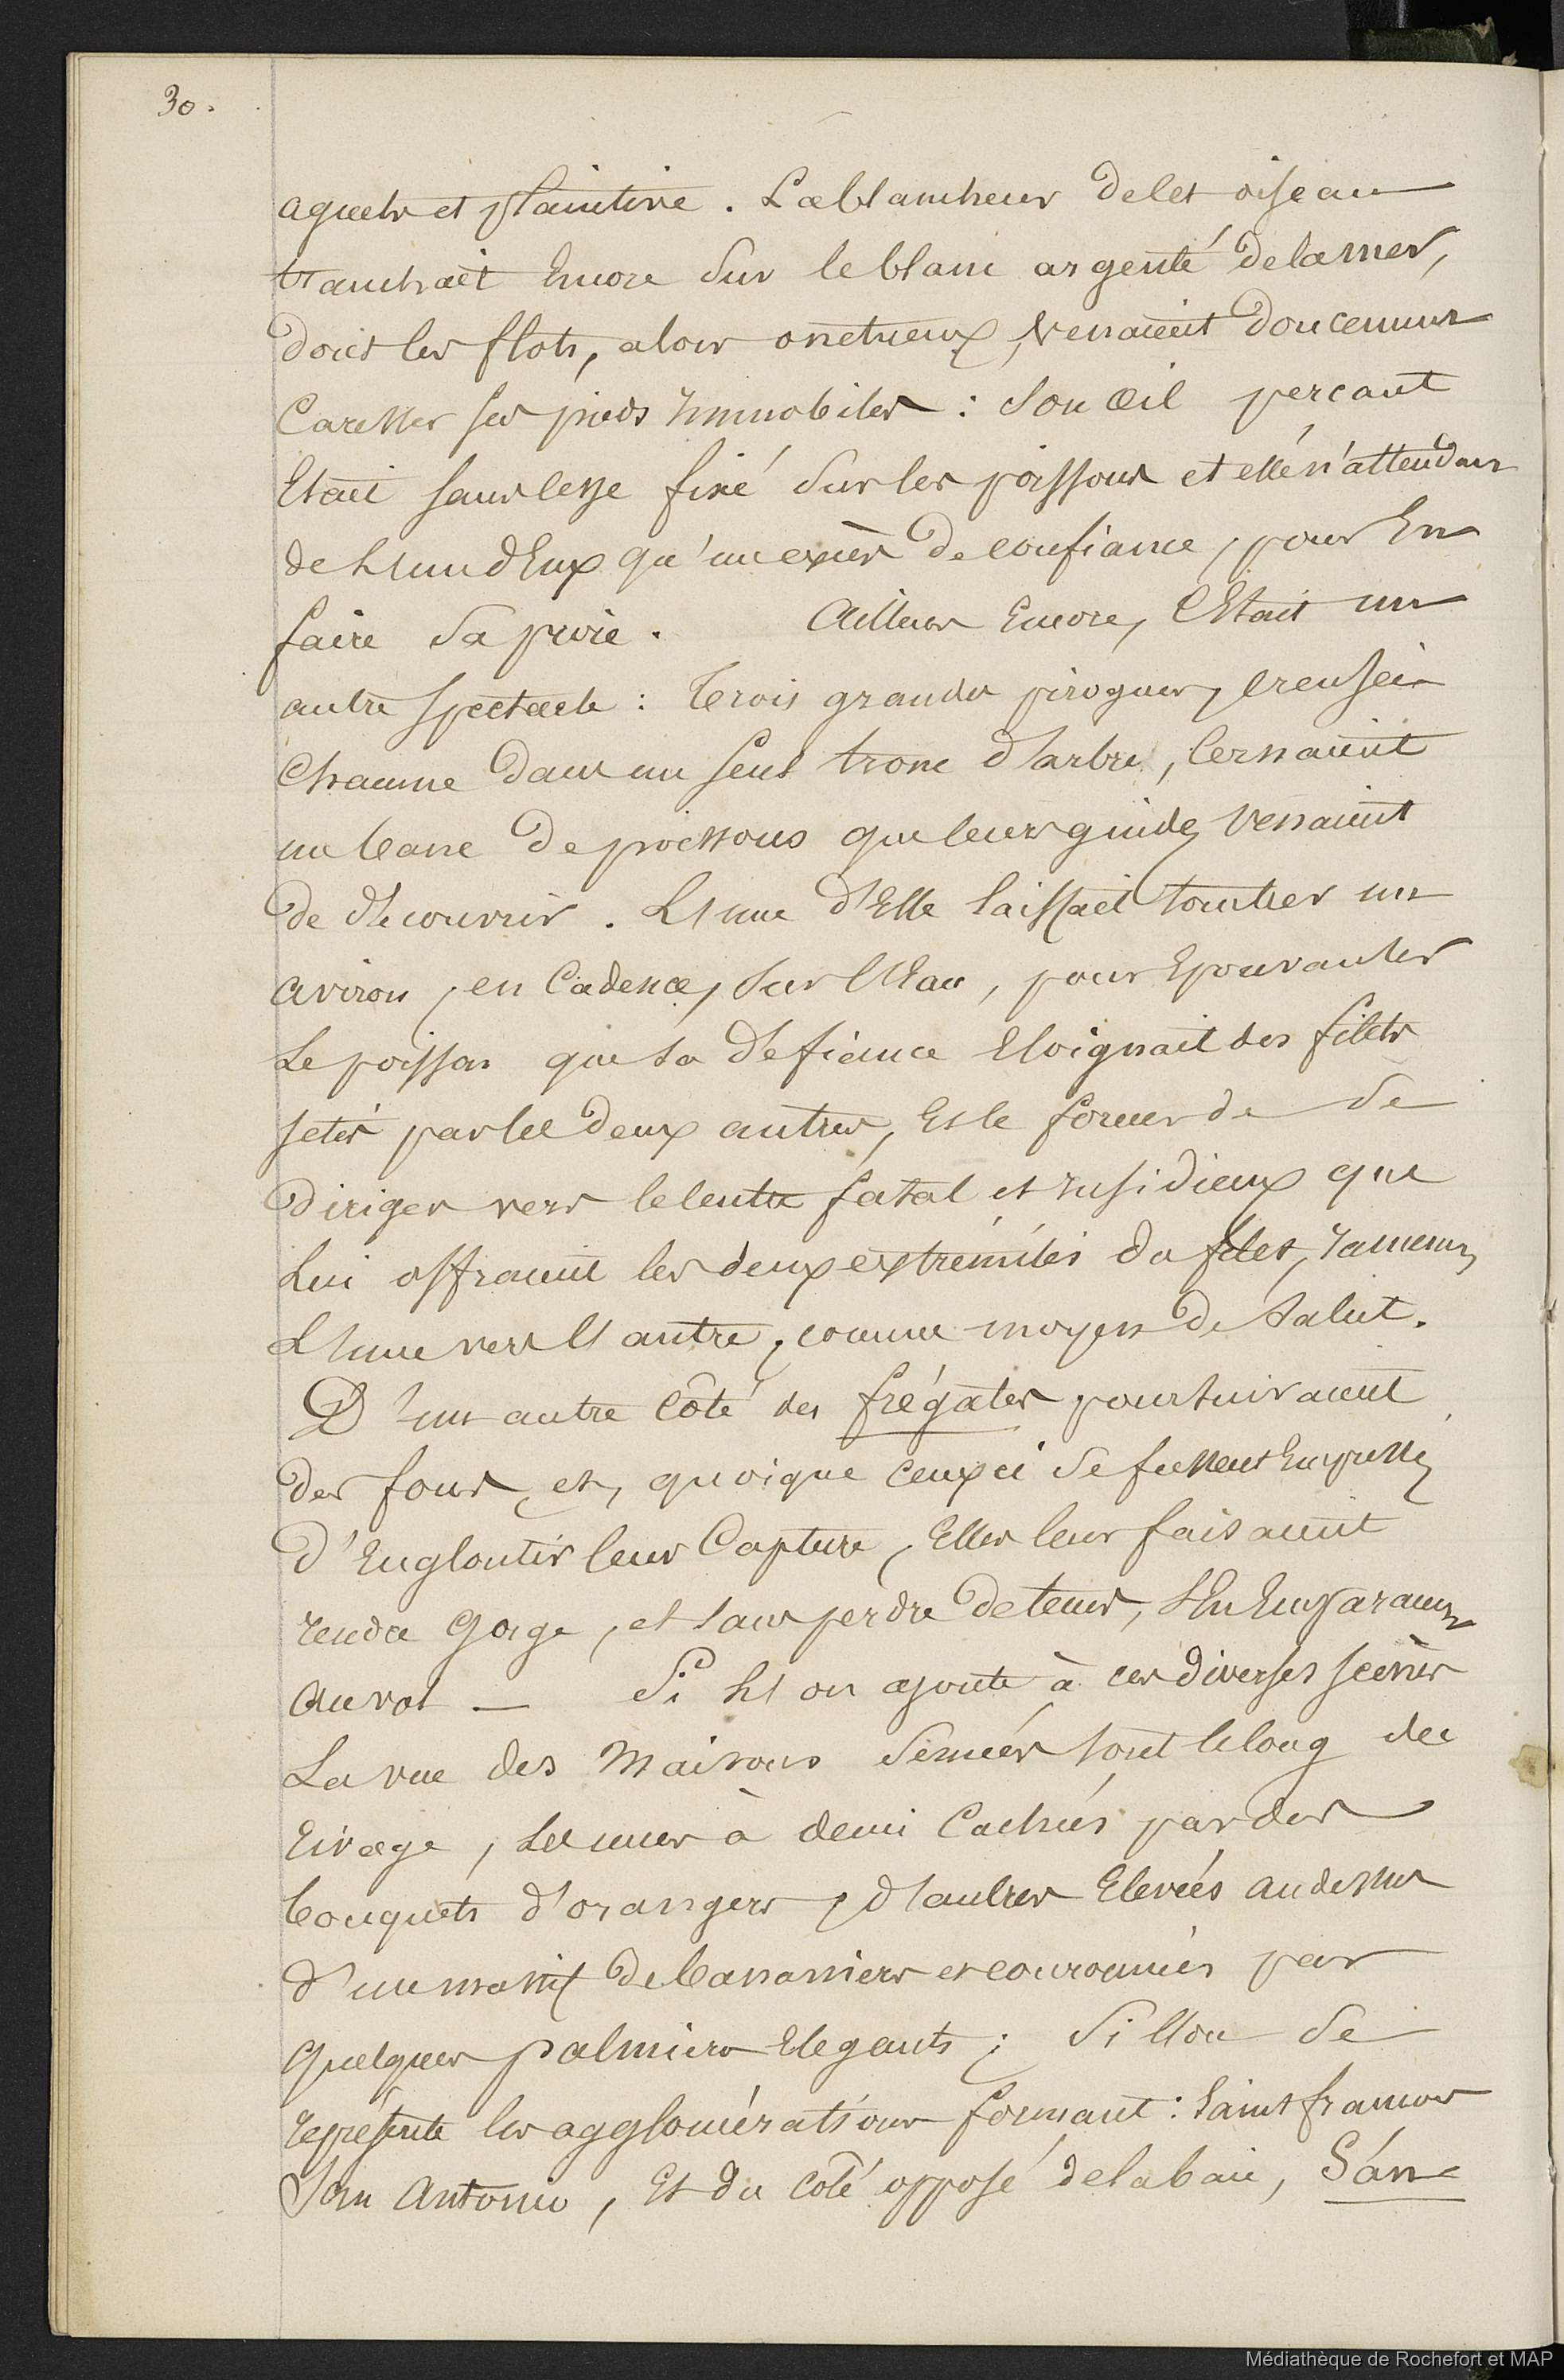 30.
aguets et plaintive. La blancheur de cet oiseau
tranchait encore sur le blanc argenté de la mer,
dont les flots, alors onctueux, venaient doucement
caresser ses pieds immobiles : son œil perçant
Etait sans cesse fixé sur les poissons et elle n'attendait
de l'un d'Eux qu'un excès de confiance, pour En
faire sa proie. Ailleurs Encore, c'Etait un
autre spectacle : trois grandes pirogues, creusées
chacune dans un seul tronc d'arbre, cernaient
un banc de poissons que leurs guides venaient
de découvrir. L'une d'Elle laissait tomber un
aviron, en cadence, sur l'Eau, pour Epouvanter
Le poisson que sa défiance Eloignait des filets
jetés par les deux autres, Et le forcer de se
diriger vers le centre fatal et insidieux que
Lui offraient les deux extrémités du filet, ramenées
L'une vers l'autre, comme moyen de salut.
D'un autre côté des frégates poursuivaient
des fous, et, quoique ceux ci se fussent Empressés
d'Engloutir leur Capture, Elles leur faisaient
rendre gorge, et sans perdre de tems, s'En Emparaient
au vol — Si l'on ajoute à ces diverses scènes
La vue des Maisons semées tout le long du
rivage, les unes à demi Cachées par des
bouquets d'orangers, d'autres Elevées au dessus
d'un massif de bananiers et couronnées par
quelques palmiers Elegants ; Si l'on se
représente les agglomérations formant : Saint francois
San Antonio, Et du côté opposé de la baie, Sán
Médiathèque de Rochefort et MAP